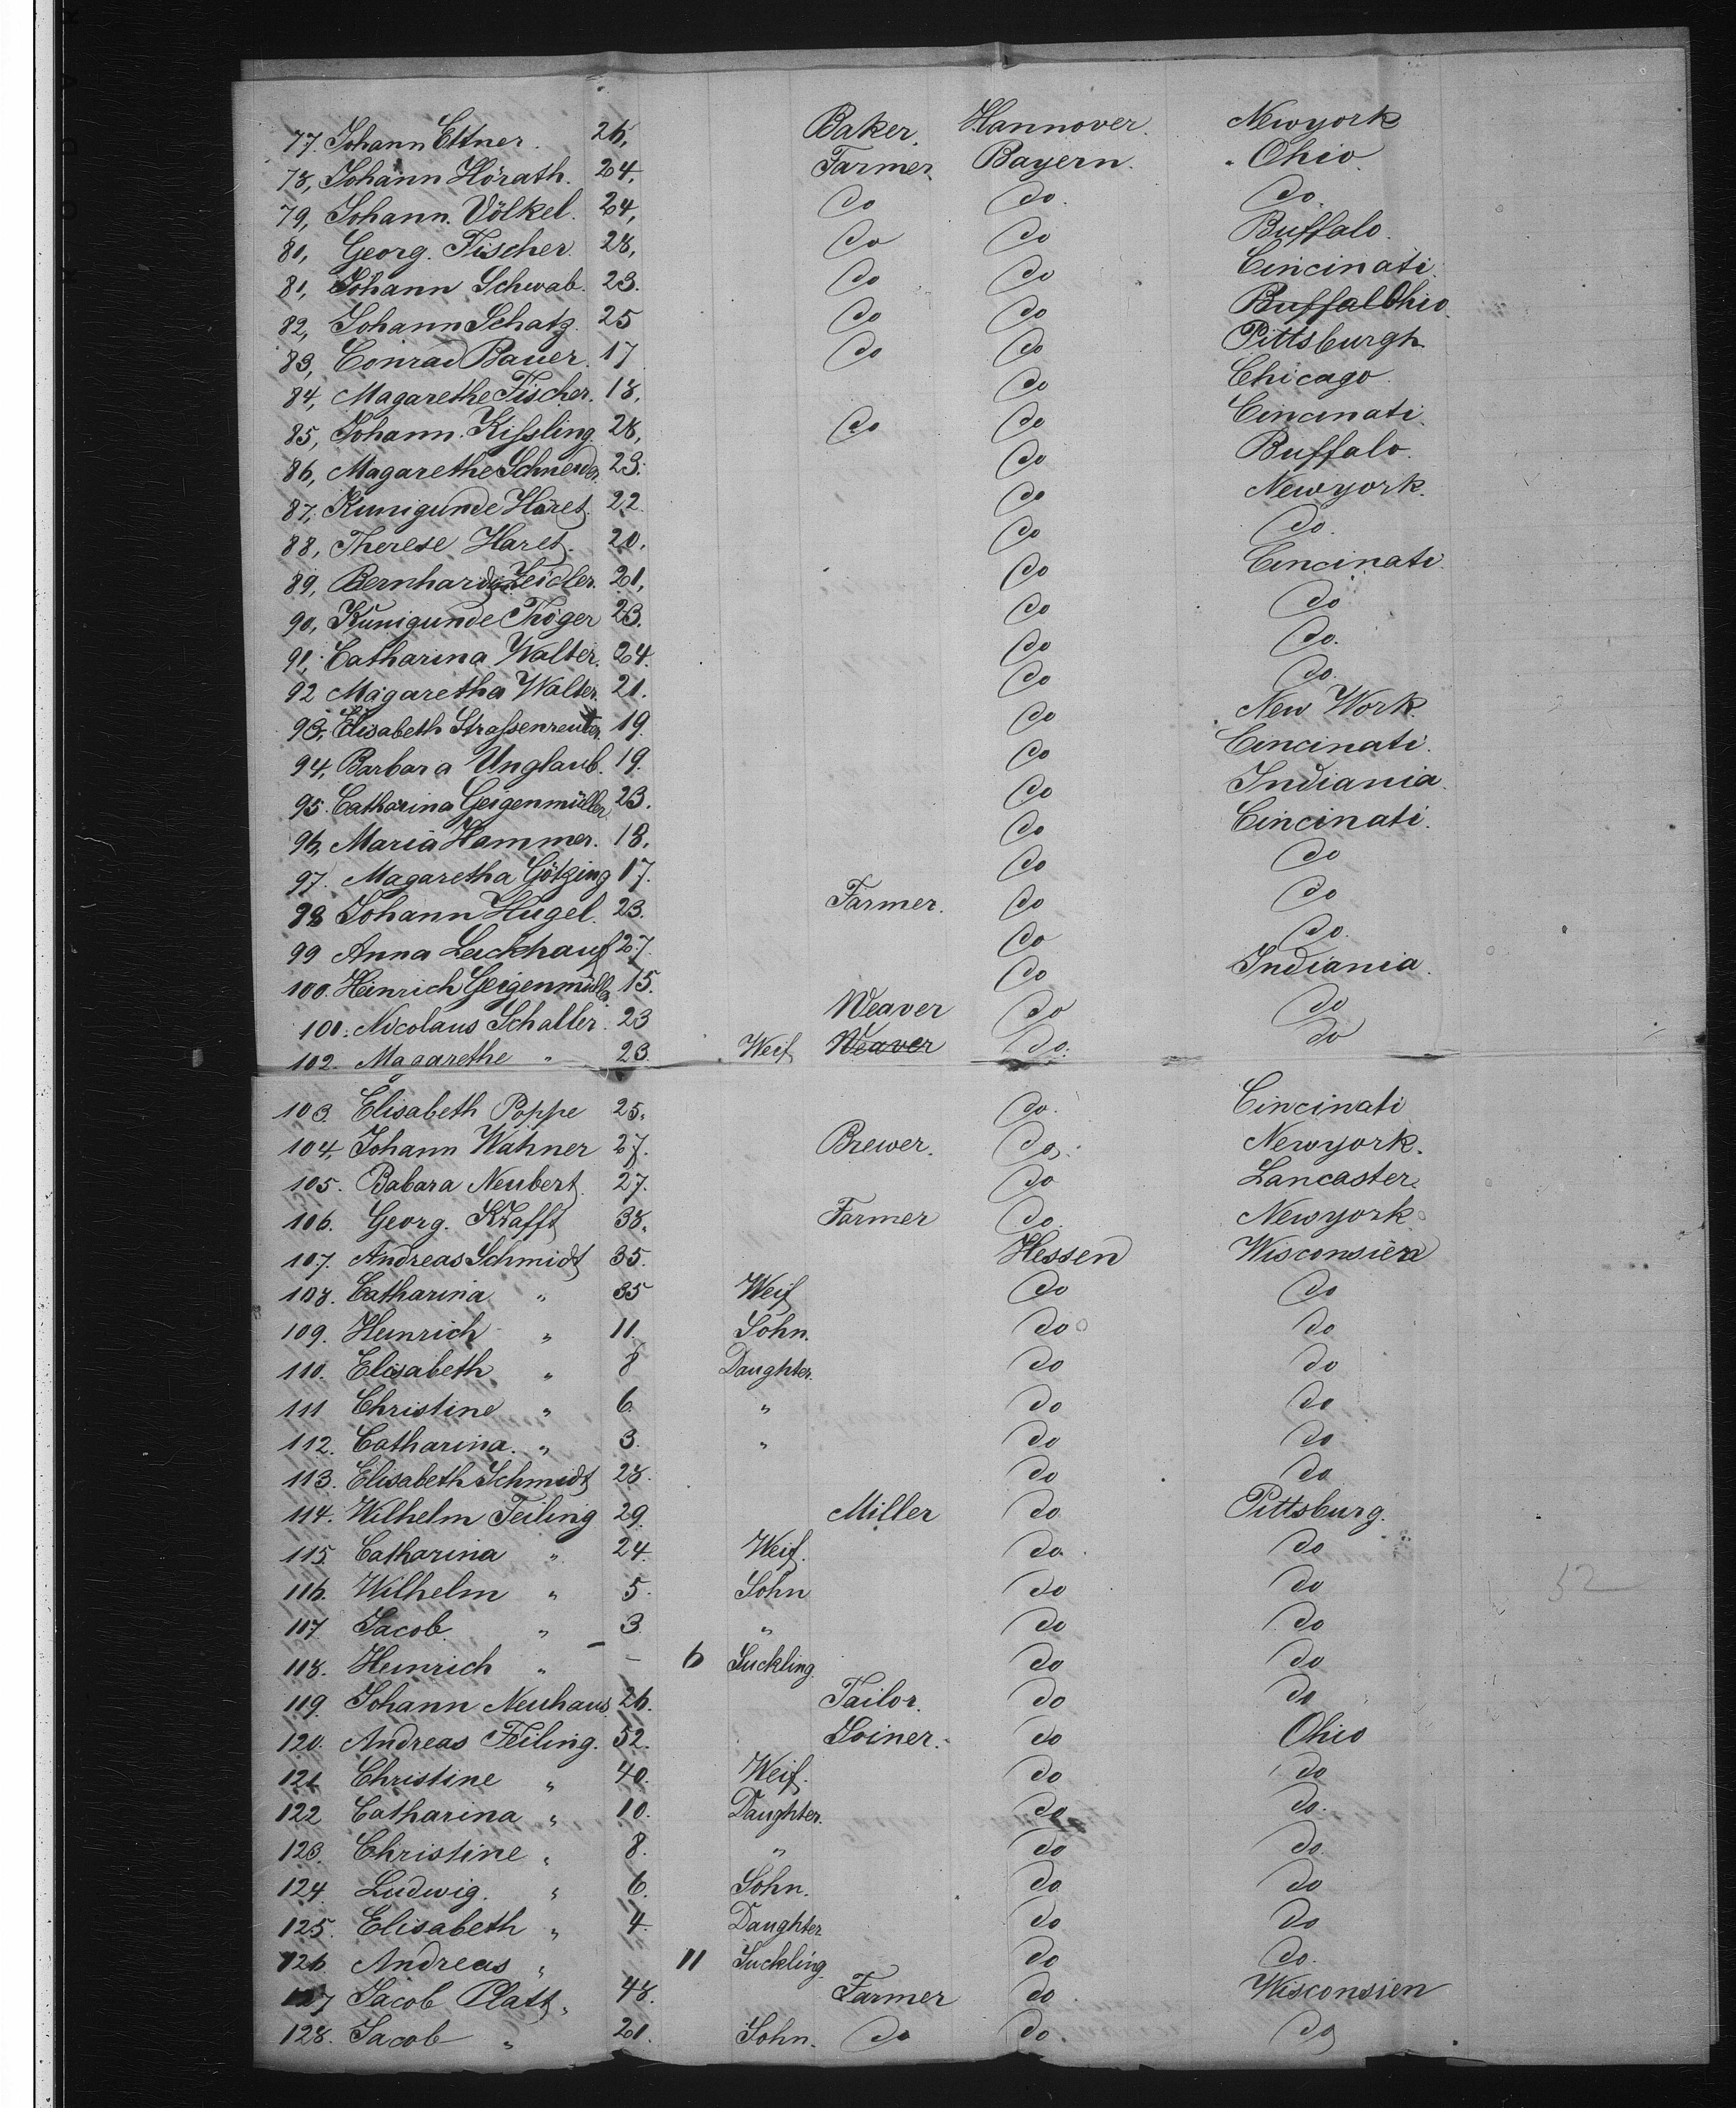 77. Johann Ettner. 26, Baker. Hannover. Newyork
78, Johann Hörath. 24, Farmer. Bayern. Ohio
79, Johann. Völkel. 24, do do. do.
81, Georg. Fischer. 28, do do Buffalo.
81, Johann Schwab. 23. do do Cincinati.
82, Johann Schatz. 25 do do Buffal Ohio.
83, Conrad Bauer. 17 do do Pittsburgh
84, Magarethe Fischer. 18, do Chicago.
85, Johann. Kissling. 28, do do Cincinati.
86, Magarethe Schneider. 23. do Buffalo.
87, Kunigunde Häret. 22 do Newyork.
88, Therese Haret. 20, do do.
89, Bernhard Zeidler. 21, do Cincinati.
90, Kunigunde Thöger 23. do do
91, Catharina Walter. 24. do do.
92 Magaretha Walter. 21. do do.
93, Elisabeth Strassenreuter. 19. do New Work.
94, Barbara Unglaub. 19. do Cincinati.
95. Catharina Geigenmüller 23. do Indiania.
96, Maria Hammer. 18, do Cincinati.
97. Magaretha Götzing 17. do do
98 Johann Hugel. 23. Farmer. do do
99 Anna 27. do do.
100. Heinrich Geigenmüller. 15. do Indiania.
101. Nicolaus Schaller. 23 Weaver do do
102. Magarethe " 23. Weif Weaver do. do
103. Elisabeth Poppe 25. do. Cincinati
104, Johann Wahner 27. Brewer. do. Newyork.
105. Babara Neubert. 27. do Lancaster.
106. Georg. Krafft 38. Farmer do. Newyork
107. Andreas Schmidt 35. Hessen Wisconsien
108. Catharina " 35 Weif do do
109. Heinrich " 11. Sohn. do do
110. Elisabeth " 8 Daughter. do do
111 Christine " 6. " do do
112. Catharina. " 3. " do do
113. Elisabeth Schmidt 28. do do
114. Wilhelm Feiling 29. Miller do Pittsburg.
115. Catharina " 24. Weif. do. do
116. Wilhelm " 5. Sohn do do
117 Jacob. " 3. " do do
118. Heinrich " – 6 Suckling. do do
119 Johann Neuhaus. 26. Tailor. do do
120. Andreas Feiling. 52. Joiner. do Ohio
121 Christine " 40. Weif. do do
122 Catharina " 10. Daughter. do do.
123. Christine " 8. " do do.
124. Ludwig. " 6. Sohn. do do
125. Elisabeth " 4. Daughter do do
126 Andreas " 11 Suckling. do do.
127 Jacob Platt. 48. Farmer do. Wisconsien
128. Jacob " 21. Sohn. do do. do
52